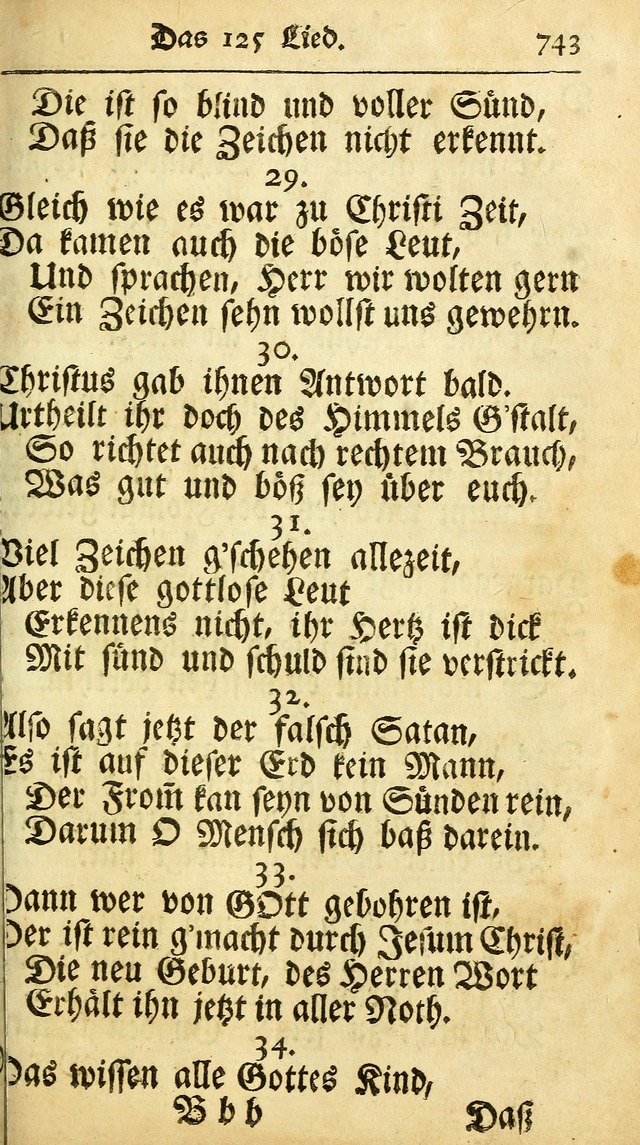 Das 125 Lied. 743
Die ist so blind und voller Sünd,
Daß sie die Zeichen nicht erkennt.
29.
Gleich wie es war zu Christi Zeit,
Da kamen auch die böse Leut,
Und sprachen, Herr wir wolten gern
Ein Zeichen sehn wollst uns gewehrn.
30.
Christus gab ihnen Antwort bald.
Urtheilt ihr doch des Himmels G'stalt,
So richtet auch nach rechtem Brauch,
Was gut und böß sey über euch.
31.
Viel Zeichen g'schehen allezeit,
Aber diese gottlose Leut
Erkennens nicht, ihr Hertz ist dick
Mit sünd und schuld sind sie verstrickt.
32.
Also sagt jetzt der falsch Satan,
Es ist auf dieser Erd kein Mann,
Der From̃ kan seyn von Sünden rein,
Darum O Mensch sich baß darein.
33.
Dann wer von GOtt gebohren ist,
Der ist rein g'macht durch Jesum Christ,
Die neu Geburt, des Herren Wort
Erhält ihn jetzt in aller Noth.
34.
Das wissen alle Gottes Kind,
Bbb Daß